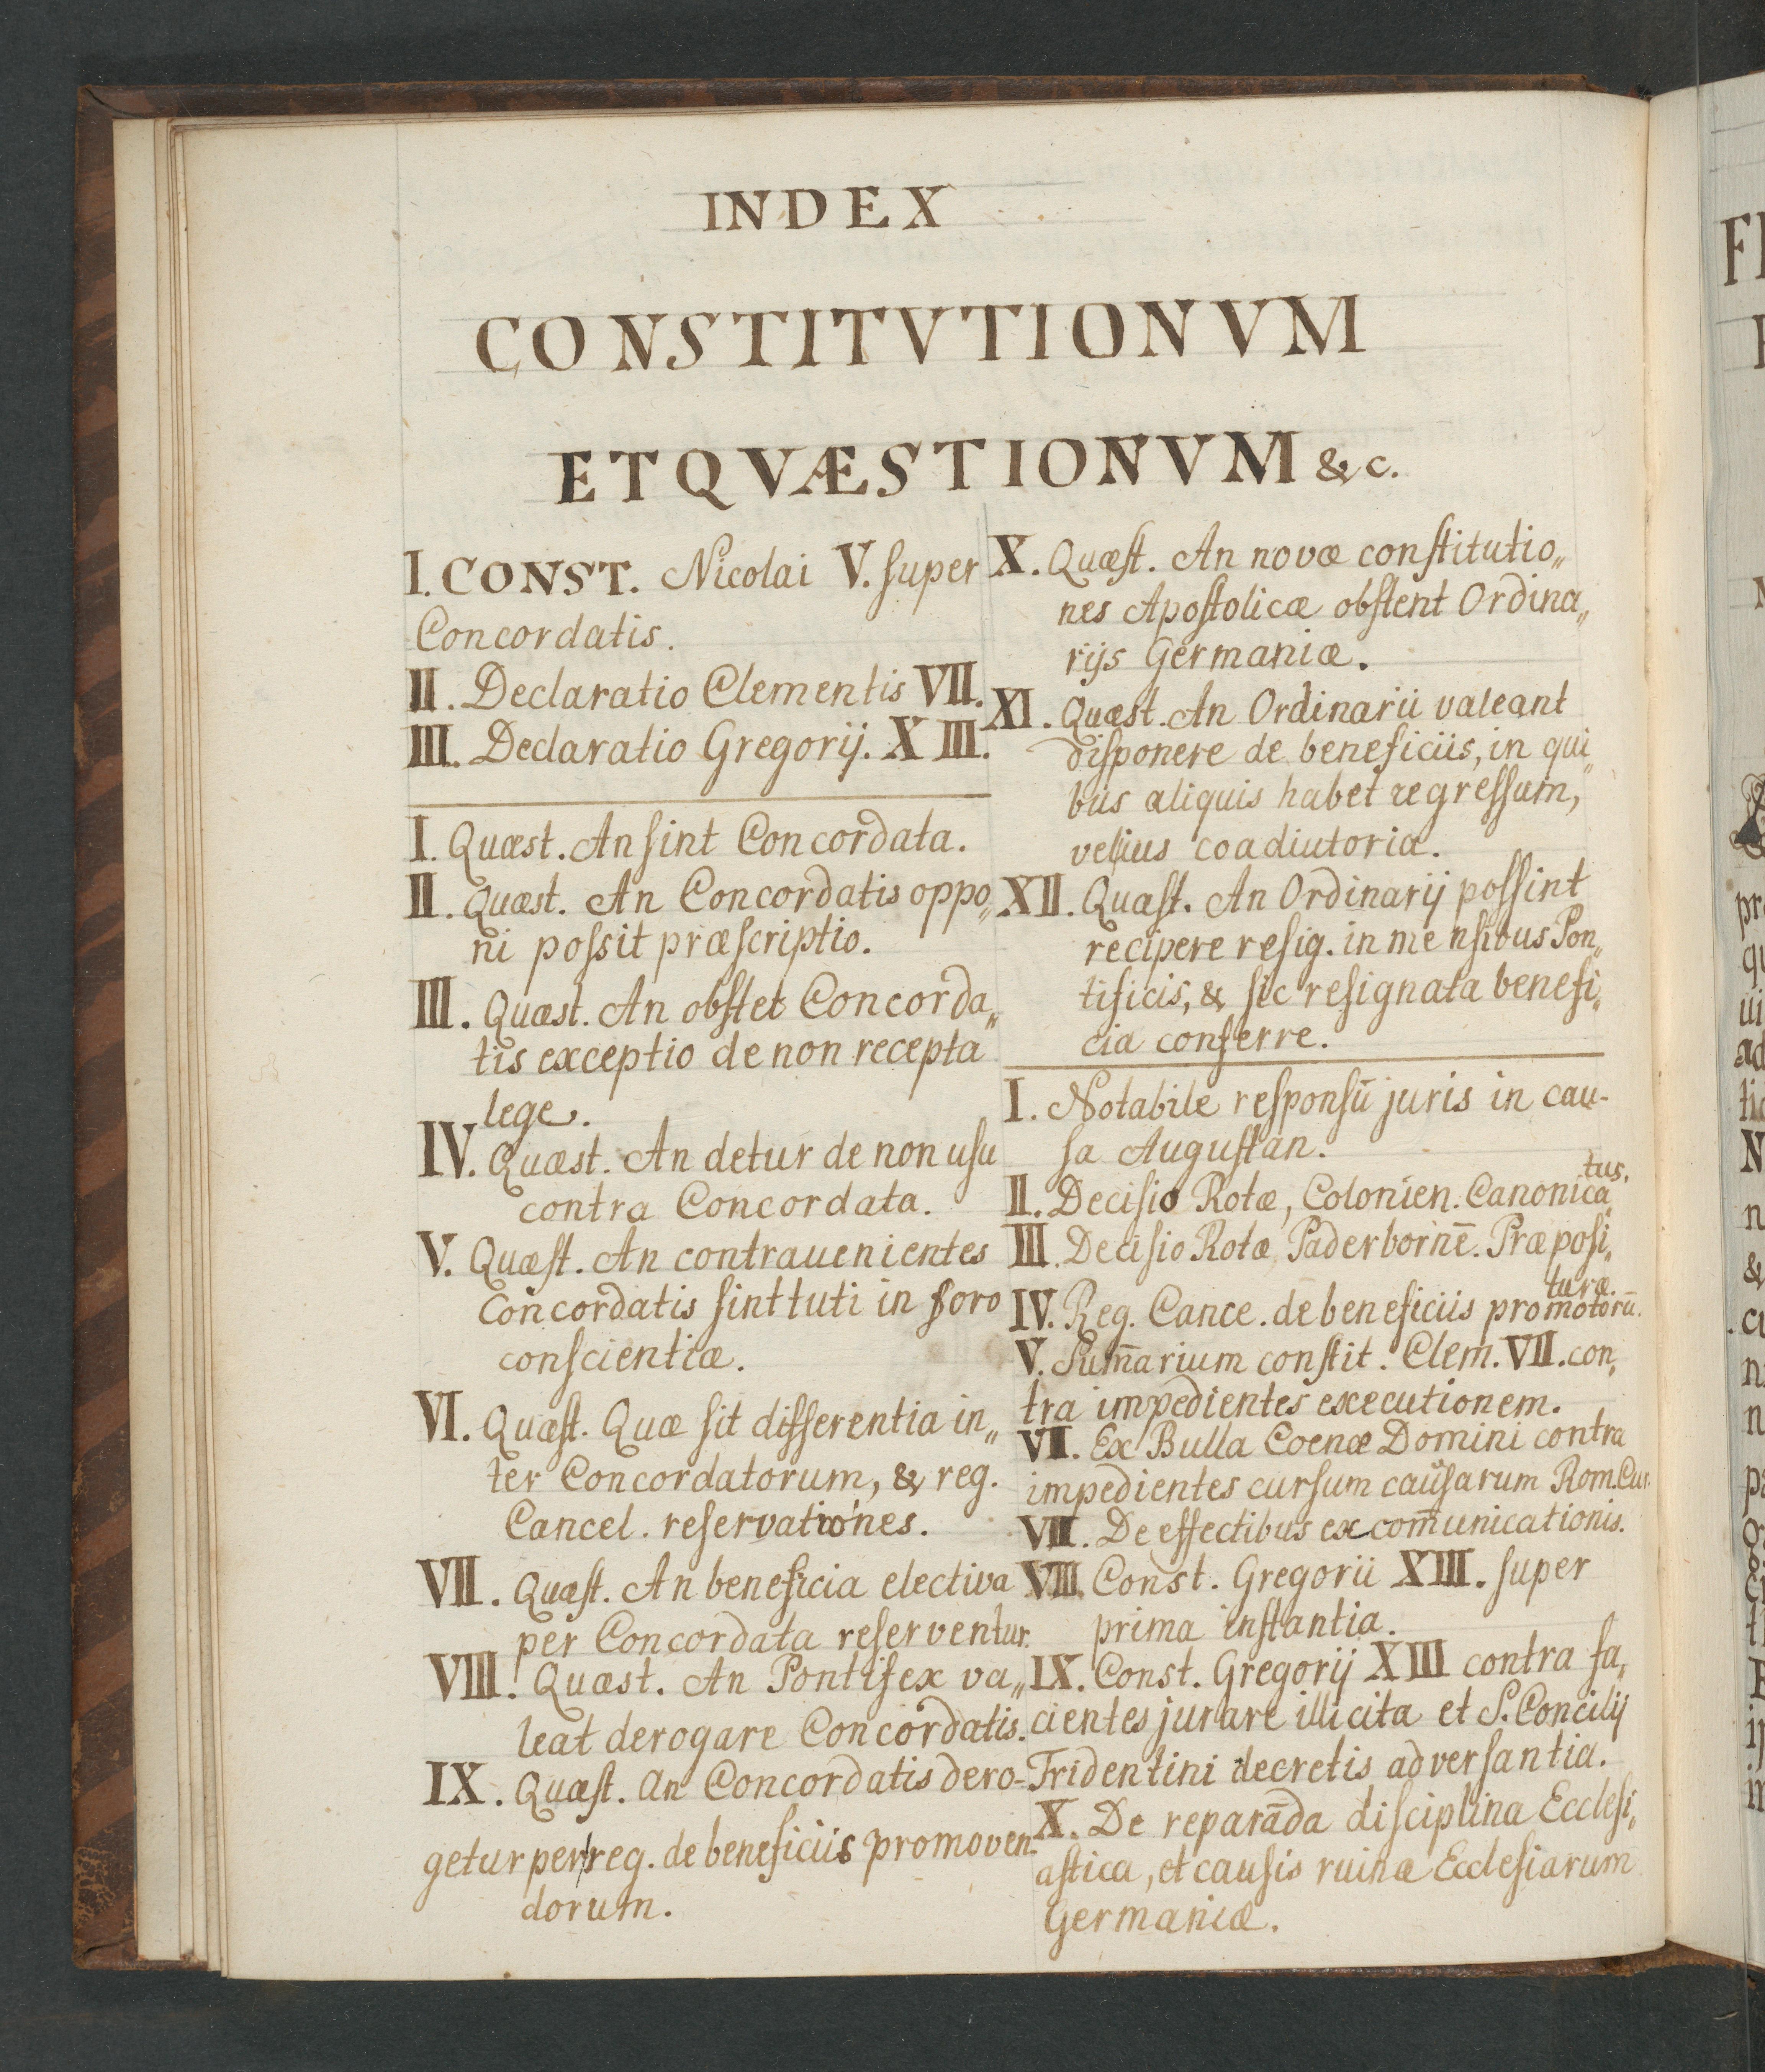 INDEX
CONSTITVTIONVM
ET QVÆSTIONVM &c.
I. CONST. Nicolai V. ſuper
Concordatis.
II. Declaratio Clementis VII.
III. Declaratio Gregorij. XIII.
I. Quæst. An ſint Concordata.
II. Quæst. An Concordatis oppo„
ni poſsit præſcriptio.
III. Quæst. An obſtet Concorda„
tis exceptio de non recepta
lege.
IV. Quæst. An detur de non uſu
contra Concordata.
V. Quæſt. An contrauenientes
Concordatis ſint tuti in foro
conſcientiæ.
VI. Quæſt. Quæ ſit differentia in„
ter Concordatorum, & reg.
Cancel. reſervationes.
VII. Quæſt. An beneficia electiva
per Concordata reſerventur.
VIII. Quæst. An Pontifex va„
leat derogare Concordatis.
IX. Quæſt. An Concordatis dero-
getur per reg. de beneficiis promoven-
dorum.
X. Quæſt. An novæ conſtitutio„
nes Apoſtolicæ obſtent Ordina„
rijs Germaniæ.
XI. Quæst. An Ordinarii valeant
diſponere de beneficiis, in qui„
bus aliquis habet regreſſum,
vel ius coadiutoria.
XII. Quæſt. An Ordinarij poſſint
recipere reſig. in menſibus Pon„
tificis, & ſic reſignata benefi„
cia conferre.
I. Notabile reſponſū juris in cau-
ſa Auguſtan.
II. Deciſio Rotæ, Colonien. Canonica„
tus.
III. Deciſio Rotæ Paderborne̅. Præpoſi„
turæ.
IV. Reg. Cance. de beneficiis promotorū.
V. Sum̅arium conſtit. Clem. VII. con„
tra impedientes executionem.
VI. Ex Bulla Coenæ Domini contra
impedientes curſum cauſarum Rom. Cur.
VII. De effectibus excom̅unicationis.
VIII. Const. Gregorii XIII. ſuper
prima inſtantia.
IX. Const. Gregorij XIII contra fa„
cientes jurare illicita et S. Concilij
Tridentini decretis adverſantia.
X. De reparāda diſciplina Eccleſi„
aſtica, et cauſis ruinæ Eccleſiarum
Germaniæ.